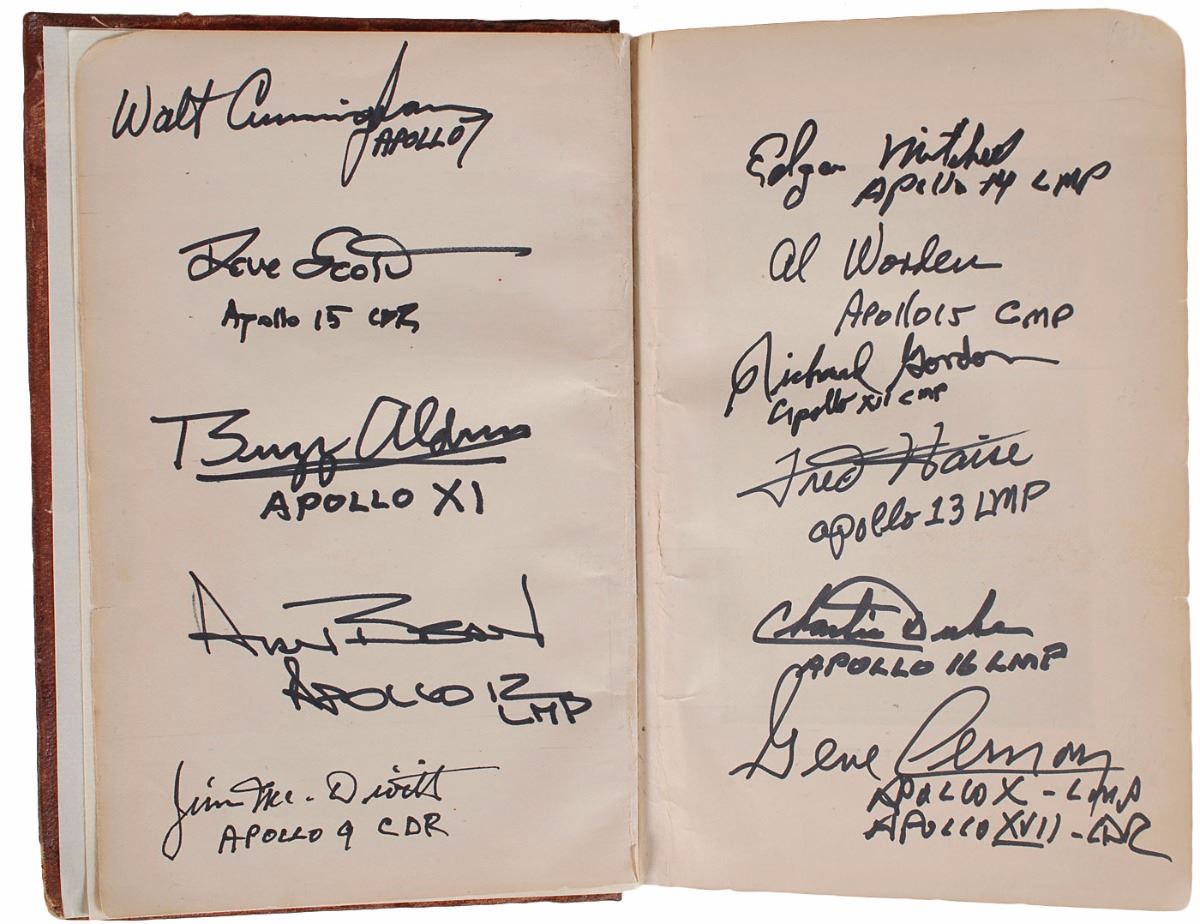 Walt Cunningham
APOLLO 7
Dave Scott
Apollo 15 CDR
Buzz Aldrin
APOLLO XI
Alan Bean
APOLLO 12
LMP
Jim Mc. Divitt
APOLLO 9 CDR
Edgar Mitchell
Apollo 14 LMP
Al Worden
Apollo 15 CMP
Richard Gordon
Apollo XII CMP
Fred Haise
apollo 13 LMP
Charlie Duke
APOLLO 16 LMP
Gene Cernan
APOLLO X - LMP
APOLLO XVII - CDR